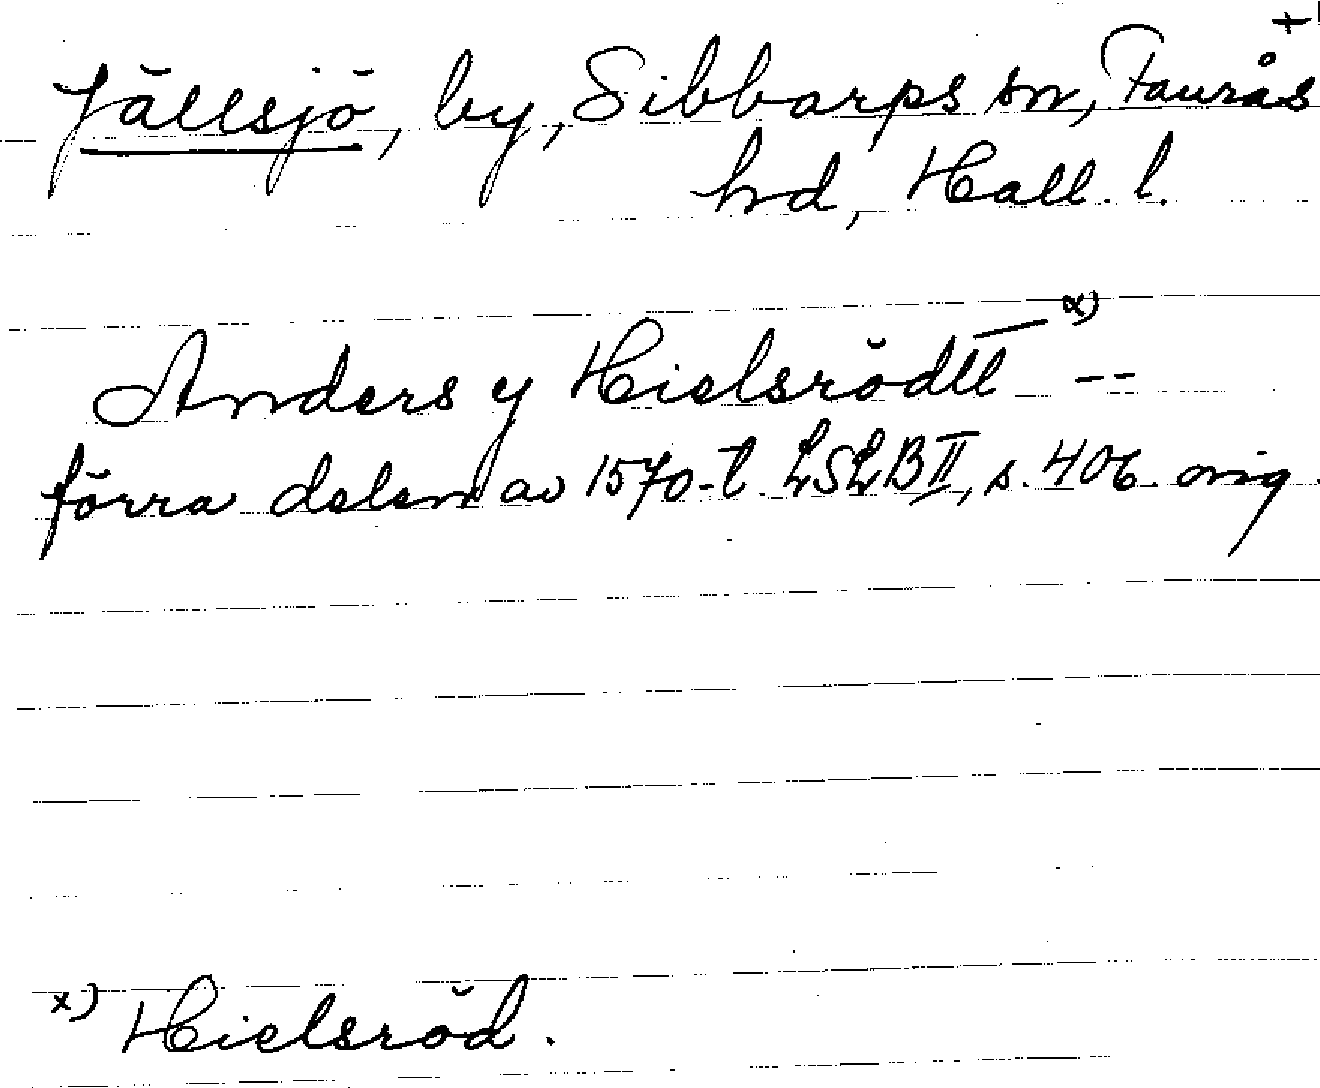 +
Jällsjö, by, Sibbarps sn, Faurås
hd, Hall. l.
Anders y Hielsrödtt x) --
förra delen av 1570-t. LSLB II, s. 406 orig.
x) Hielsröd.